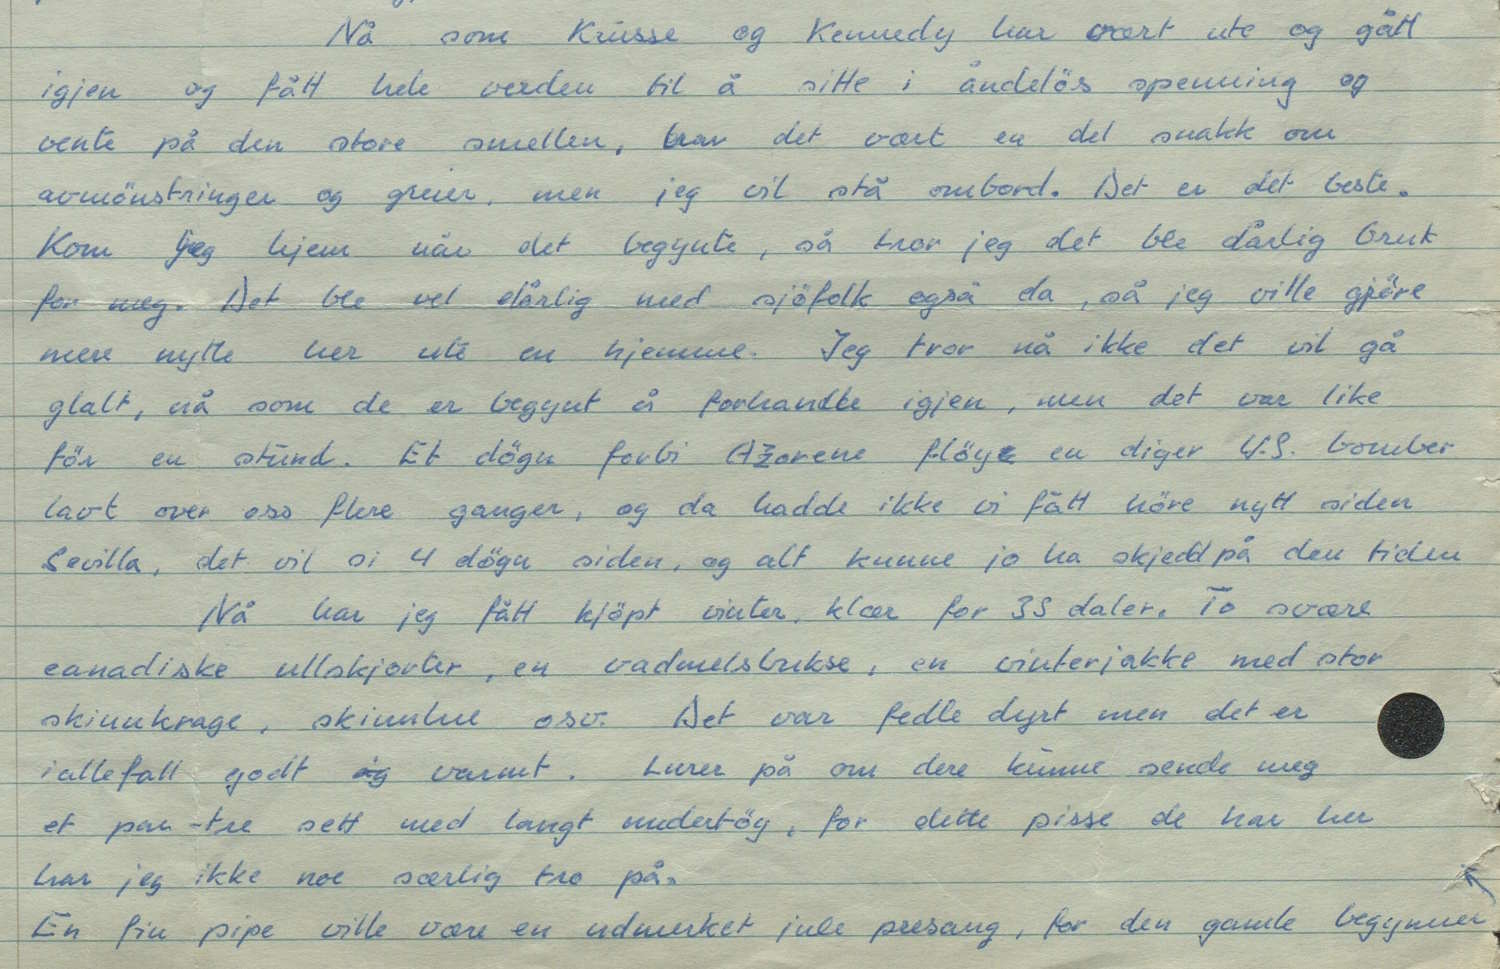 Nå som Krusse og Kennedy har vært ute og gått
igjen og fått hele verden til å sitte i åndelös spenning og
vente på den store smellen, har det vært en del snakk om
avmönstringer og greier, men jeg vil stå ombord. Det er det beste.
Kom jeg hjem når det begynte, så tror jeg det ble dårlig bruk
for meg. Det ble vel dårlig med sjöfolk også da, så jeg ville gjöre
mere nytte her ute en hjemme. Jeg tror nå ikke det vil gå
glalt, nå som de er begynt å forhandle igjen, men det var like
för en stund. Et dögn forbi Azorene flöy en diger U.S. bomber
lavt over oss flere ganger, og da hadde ikke vi fått höre nytt siden
Sevilla, det vil si 4 dögn siden, og alt kunne jo ha skjedd på den tiden
Nå har jeg fått kjöpt vinter klær for 35 daler. To svære
canadiske ullskjorter, en vadmelsbukse, en vinterjakke med stor
skinnkrage, skinnlue osv. Det var fedle dyrt men det er
iallefall godt og varmt. Lurer på om dere kunne sende meg
et par -tre sett med langt undertöy, for dette pisse de har her
har jeg ikke noe særlig tro på.
En fin pipe ville være en udmerket jule presang, for den gamle begynner